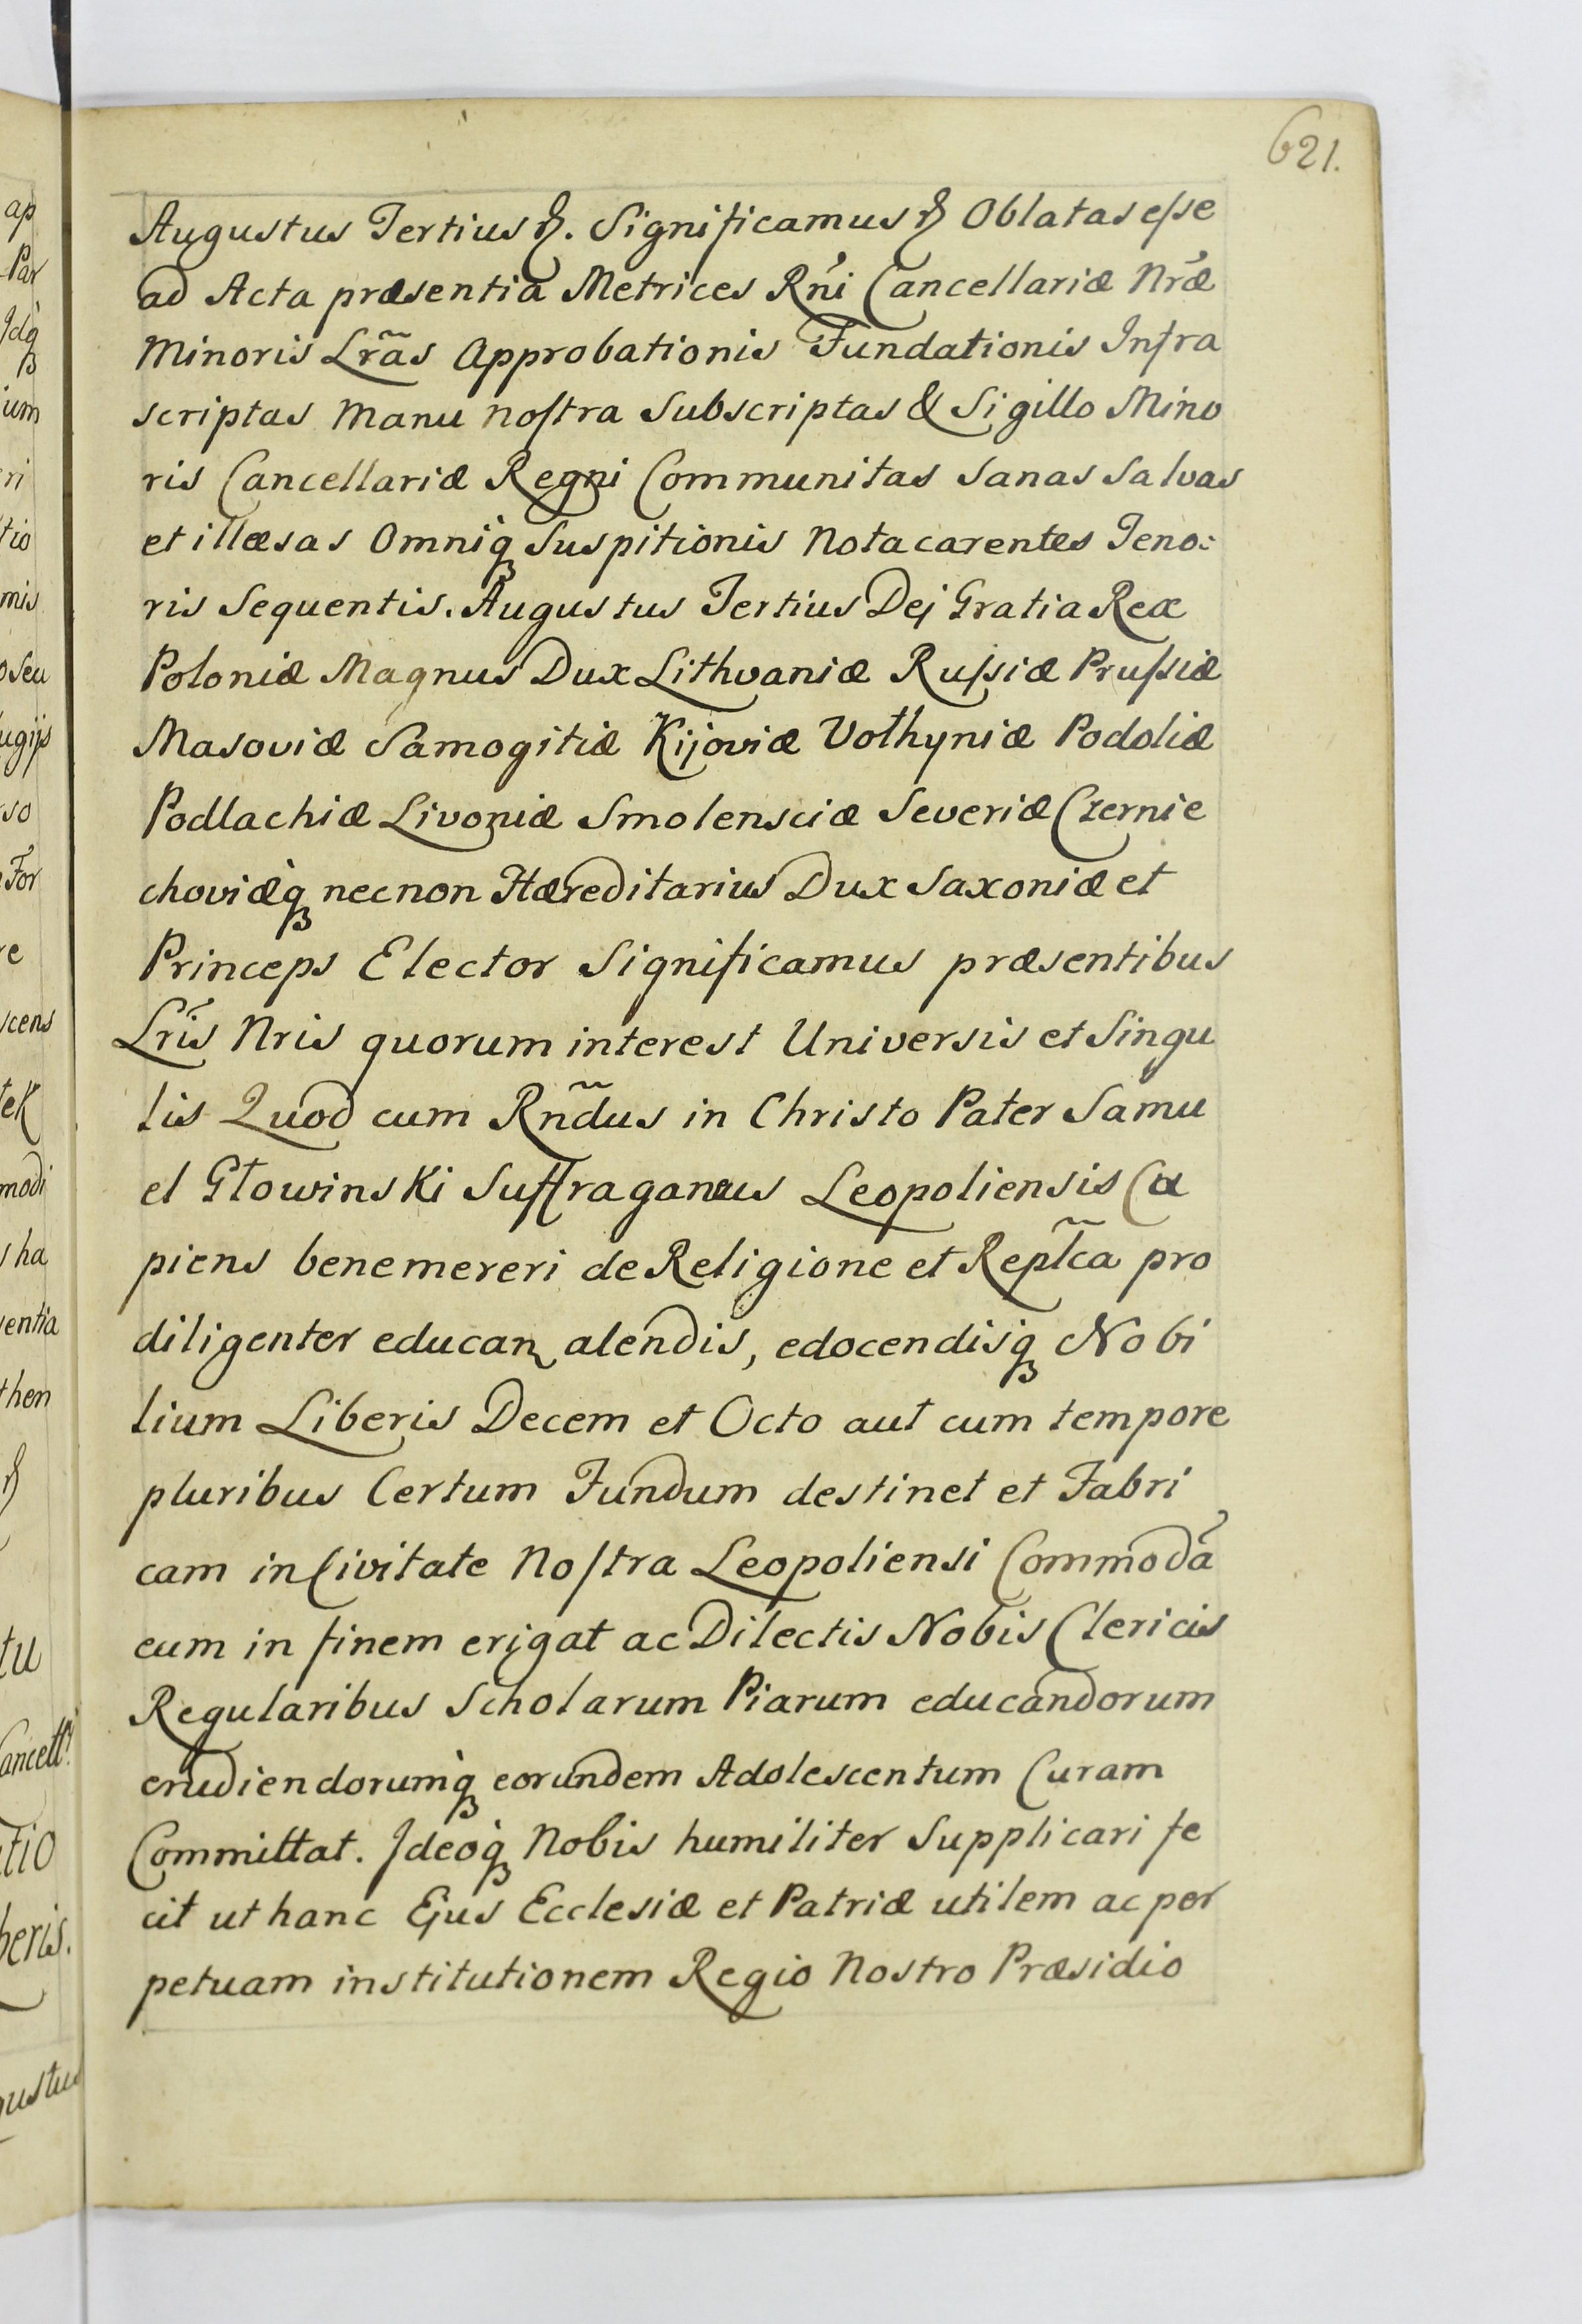 621.
Augustus Tertius &. Significamus & Oblatas eſse
ad Acta præsentia Metrices Rñi Cancellariæ Nræ
Minoris Lrãs Approbationis Fundationis Infra
scriptas Manu noſtra Subscriptas & Sigillo Mino
ris Cancellariæ Regni Communitas Sanas Salvas
et illæsas Omniq̃ Suspitionis Nota carentes Teno:
ris Sequentis. Augustus Tertius Dei Gratia Rex
Poloniæ Magnus Dux Lithvaniæ Ruſsiæ Pruſsiæ
Masoviæ Samogitiæ Kijoviæ Volhyniæ Podoliæ
Podlachiæ Livoniæ Smolensciæ Severiæ Czernie
choviæq̃ necnon Hæreditarius Dux Saxoniæ et
Princeps Elector Significamus præsentibus
Lrĩs Nris quorum interest Universis et Singu
lis Quod cum Rñdus in Christo Pater Samu
el Głowinski Suffraganeus Leopoliensis Cu
piens benemereri de Religione et Repl̃ca pro
diligenter educan alendis, edocendisq̃ Nobi
lium Liberis Decem et Octo aut cum tempore
pluribus Certum Fundum destinet et Fabri
cam in Civitate Noſtra Leopoliensi Commodã
eum in finem erigat ac Dilectis Nobis Clericis
Regularibus Scholarum Piarum educandorum
erudiendorumq̃ eorundem Adolescentum Curam
Committat. Ideoq̃ Nobis humiliter Supplicari fe
cit ut hanc Ejus Ecclesiæ et Patriæ utilem ac per
petuam institutionem Regio Nostro Præsidio